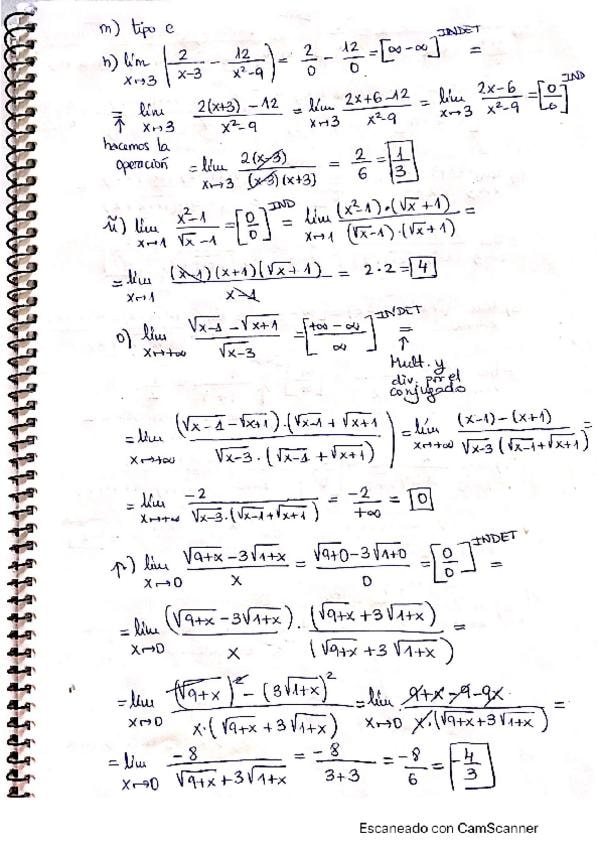 m) tipo e
n) lím x→3 (2/(x-3) - 12/(x²-9)) = 2/0 - 12/0 = [∞-∞] INDET =
= lím x→3 (2(x+3) - 12)/(x²-9) = lím x→3 (2x+6-12)/(x²-9) = lím x→3 (2x-6)/(x²-9) = [0/0] IND
↑
hacemos la
operación
= lím x→3 2(x-3)/((x-3)(x+3)) = 2/6 = 1/3
ñ) lím x→1 (x²-1)/(√x -1) = [0/0] IND = lím x→1 ((x²-1)·(√x +1))/((√x-1)·(√x+1)) =
= lím x→1 ((x-1)(x+1)(√x+1))/(x-1) = 2·2 = 4
o) lím x→+∞ (√(x-1) - √(x+1))/√(x-3) = [(+∞-∞)/∞] INDET =
↑
Mult. y
div. por el
conjugado
= lím x→+∞ ((√(x-1) - √(x+1))·(√(x-1) + √(x+1))/(√(x-3)·(√(x-1) + √(x+1))) = lím x→+∞ ((x-1)-(x+1))/(√(x-3)(√(x-1)+√(x+1))) =
= lím x→+∞ -2/(√(x-3)·(√(x-1)+√(x+1))) = -2/+∞ = 0
p) lím x→0 (√(9+x) - 3√(1+x))/x = (√(9+0) - 3√(1+0))/0 = [0/0] INDET =
= lím x→0 (√(9+x) - 3√(1+x))/x · (√(9+x) + 3√(1+x))/(√(9+x) + 3√(1+x)) =
= lím x→0 ((√(9+x))² - (3√(1+x))²)/(x·(√(9+x) + 3√(1+x))) = lím x→0 (9+x-9-9x)/(x·(√(9+x)+3√(1+x))) =
= lím x→0 -8/(√(9+x)+3√(1+x)) = -8/(3+3) = -8/6 = -4/3
Escaneado con CamScanner